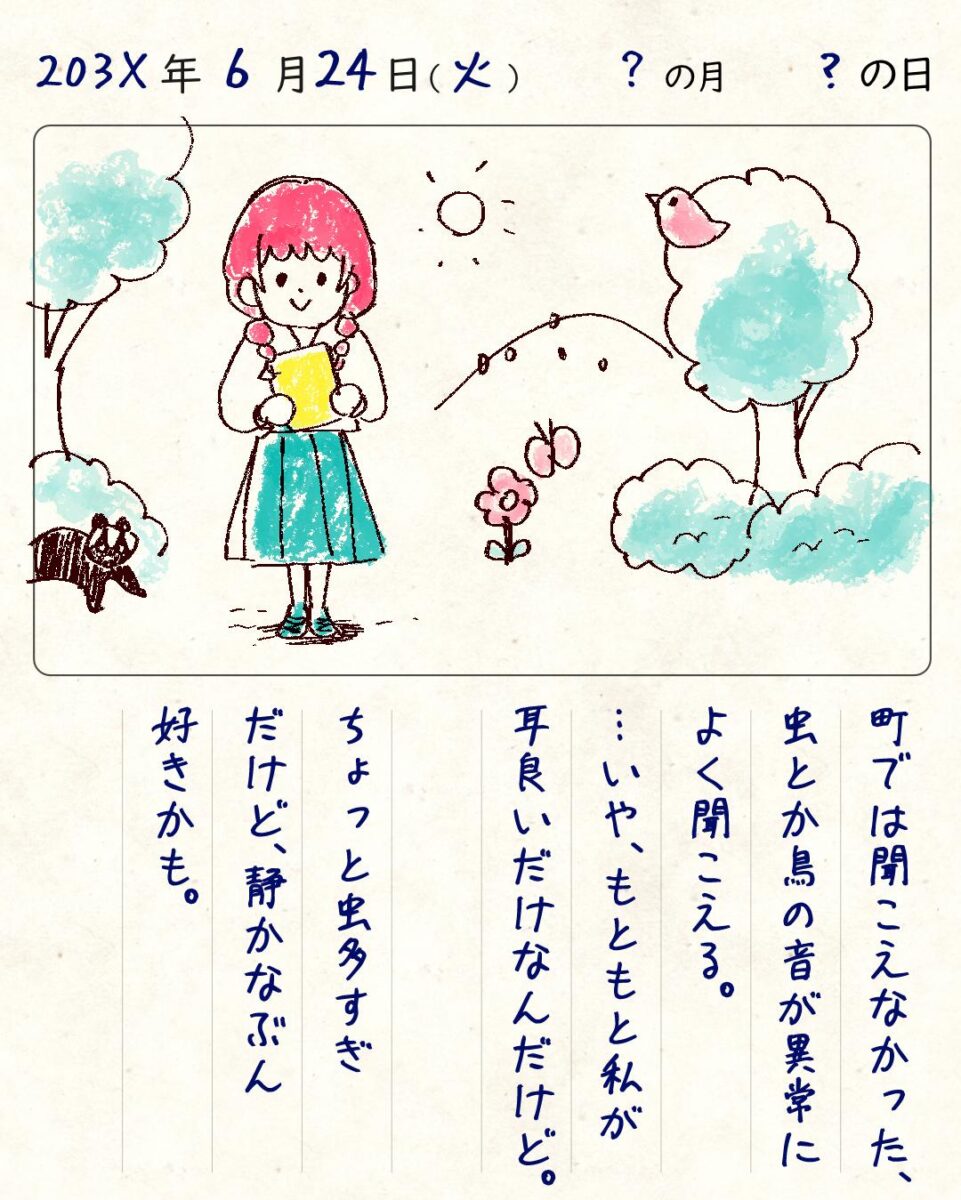 203X年 6月24日(火) ?の月 ?の日
町では聞こえなかった、
虫とか鳥の音が異常に
よく聞こえる。
…いや、もともと私が
耳良いだけなんだけど。
ちょっと虫多すぎ
だけど、静かなぶん
好きかも。